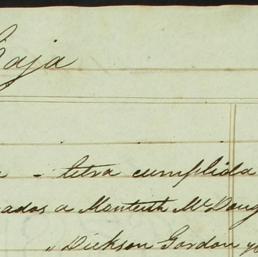 Caja
letra cumplida
a Monteith McDoug
" Dickson Gordon y